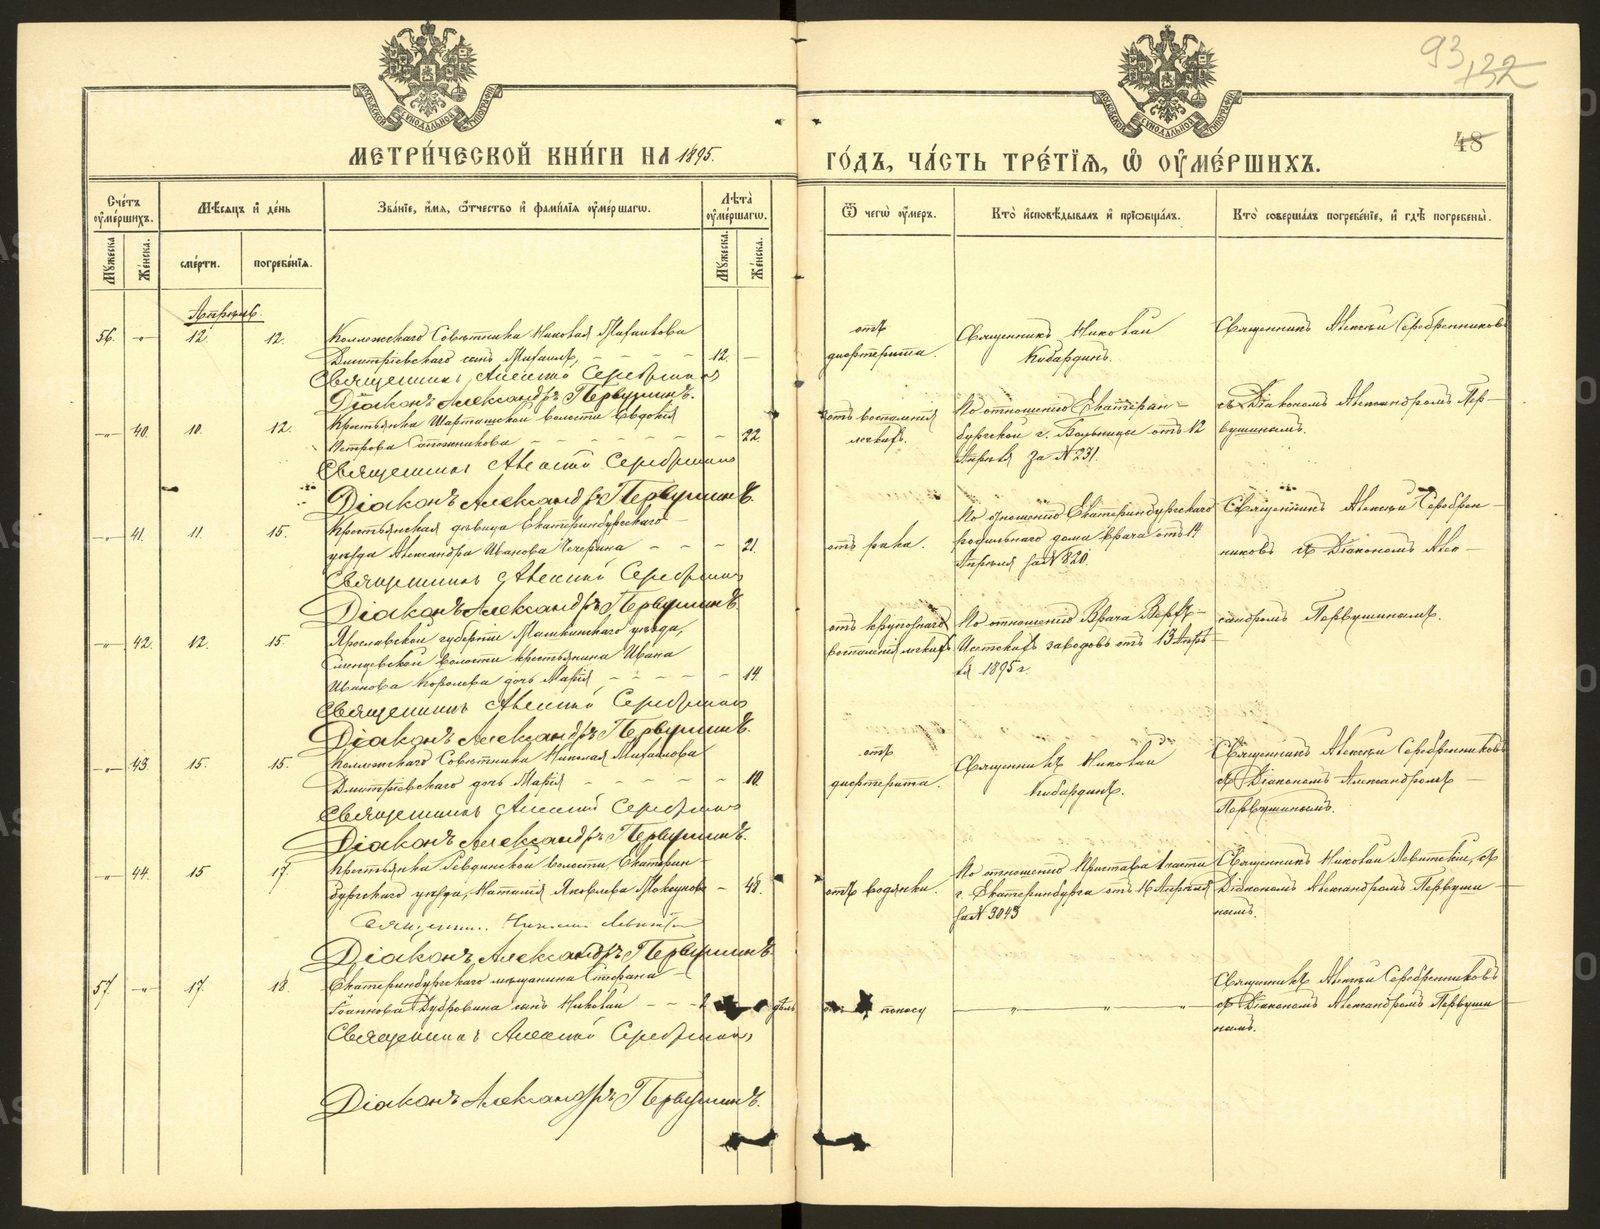 93
132
48
МОСКОВСКОЙ СѴНОДАЛЬНОЙ ТИПОГРАФІИ
МОСКОВСКОЙ СѴНОДАЛЬНОЙ ТИПОГРАФІИ
МЕТРИ́ЧЕСКОЙ КНИ́ГИ НА 1895.
ГО́ДЪ, ЧА́СТЬ ТРЕ́ТІѦ, Ѡ҆ ОУ҆МЕ́РШИХЪ.
Счетъ оумершихъ.
Мѣсяцъ и день
Званіе, имя, отчество и фамилія оумершагω.
Лѣта оумершагω.
Ѿ чегω оумеръ.
Кто исповѣдывалъ и пріωбщалъ.
Кто совершалъ погребеніе, и гдѣ погребены.
Мужеска
Женска.
смерти.
погребенія.
Мужеска.
Женска.
Апрѣль.
56. „ 12. 12. Коллежскаго Совѣтника Николая Михаилова
Дмитріевскаго сынъ Михаилъ, 12. —
отъ дифтерита.
Священникъ Николай
Кибардинъ.
Священникъ Алексѣй Серебренниковъ
Священникъ Алексѣй Серебренников
Діаконъ Александръ Первушинъ.
„ 40. 10. 12. Крестьянка Шарташской волости Евдокія
Петрова Сапожникова 22.
отъ воспаленія
легкихъ.
По отношенію Екатерин-
бургской г. Больницы отъ 12
Апрѣля за № 231.
съ Діакономъ Александромъ Пер-
вушинымъ.
Священникъ Алексѣй Серебренников
Діаконъ Александръ Первушинъ.
„ 41. 11. 15. Крестьянская дѣвица Екатеринбургскаго
уѣзда Александра Иванова Чечерина 21.
отъ рака.
По отношенію Екатеринбургскаго
родильнаго дома Врача отъ 14
Апрѣля за № 820.
Священникъ Алексѣй Серебрен-
никовъ съ Діакономъ Алек-
Священникъ Алексѣй Серебренников
Діаконъ Александръ Первушинъ.
„ 42. 12. 15. Ярославской губерніи Мышкинскаго уѣзда,
волости крестьянина Ивана
Иванова Королева дочь Марія 14.
отъ крупознаго
воспаленія легкихъ
По отношенію Врача Верхъ-
Исетскихъ заводовъ отъ 13 Апрѣ-
ля 1895 г.
сандромъ Первушинымъ.
Священникъ Алексѣй Серебренников
Діаконъ Александръ Первушинъ.
„ 43. 15. 15. Коллежскаго Совѣтника Николая Михаилова
Дмитріевскаго дочь Марія 10.
отъ
дифтерита.
Священникъ Николай
Кибардинъ.
Священникъ Алексѣй Серебренниковъ
съ Діакономъ Александромъ
Первушинымъ.
Священникъ Алексѣй Серебренников
Діаконъ Александръ Первушинъ.
„ 44. 15 17. Крестьянка Ревдинской волости, Екатерин-
бургскаго уѣзда, Наталія Яковлева 48.
отъ водянки.
По отношенію Пристава 1 части
г. Екатеринбурга отъ 16 Апрѣля
за № 3043
Священникъ Николай Левитскій, съ
Діакономъ Александромъ Первуши-
нымъ.
Священникъ Николай Левитскій
Діаконъ Александръ Первушинъ.
57. „ 17. 18. Екатеринбургскаго мѣщанина Стефана
Іоаннова Дубровина сынъ Николай
поносу
„ „ „
Священникъ Алексѣй Серебренниковъ
съ Діакономъ Александромъ Первуши-
нымъ.
Священникъ Алексѣй Серебренников
Діаконъ Александръ Первушинъ.